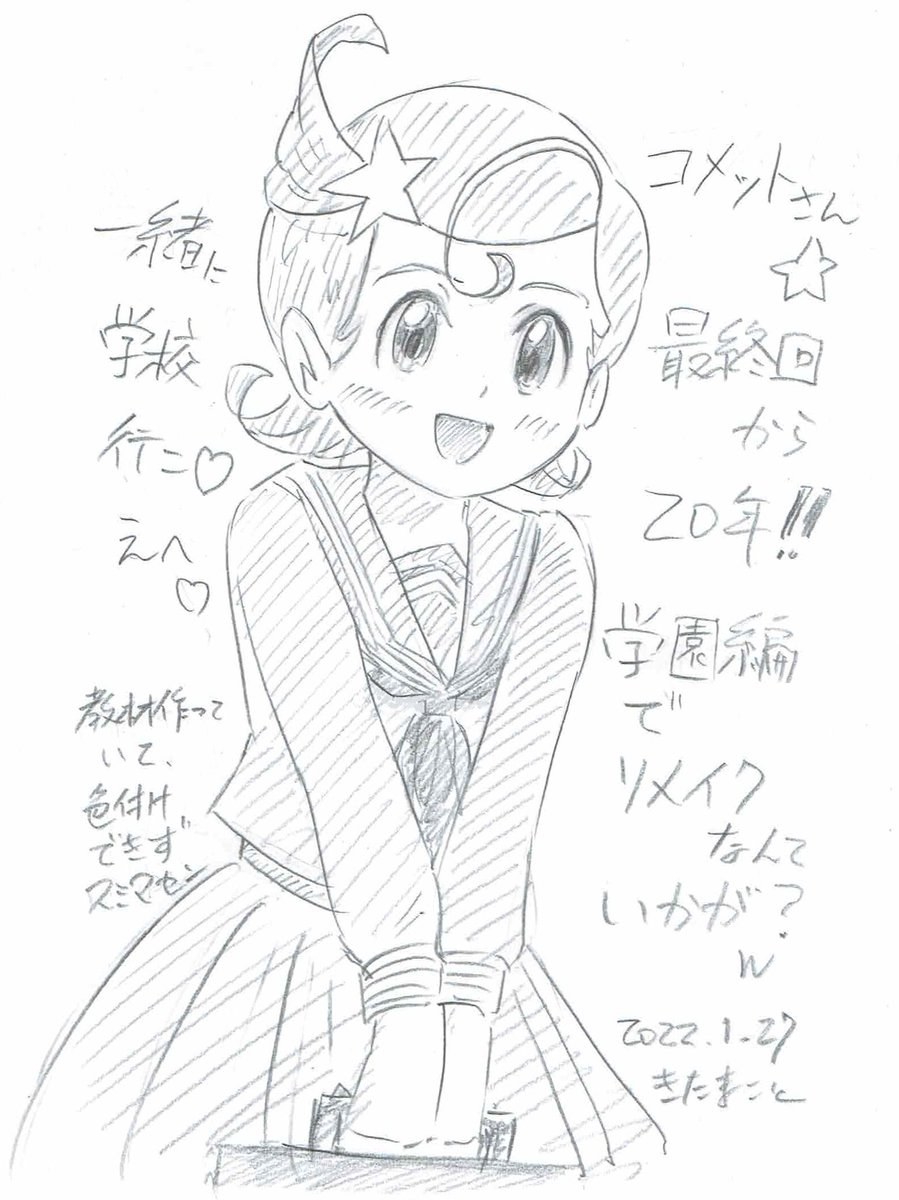 コメットさん
☆
最終回
から
20年!!
学園編
で
リメイク
なんて
いかが?
w
2022.1.27
きたまこと
一緒に
学校
行こ♡
えへ
♡
教材作って
いて、
色付け
できず
スミマセン